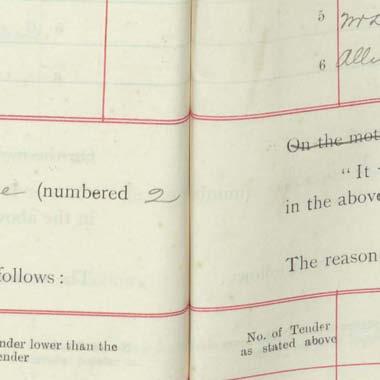 e (numbered 2
follows :
nder lower than the
ender
5
6
On the mot
"It
in the above
The reason
No. of Tender
as stated above